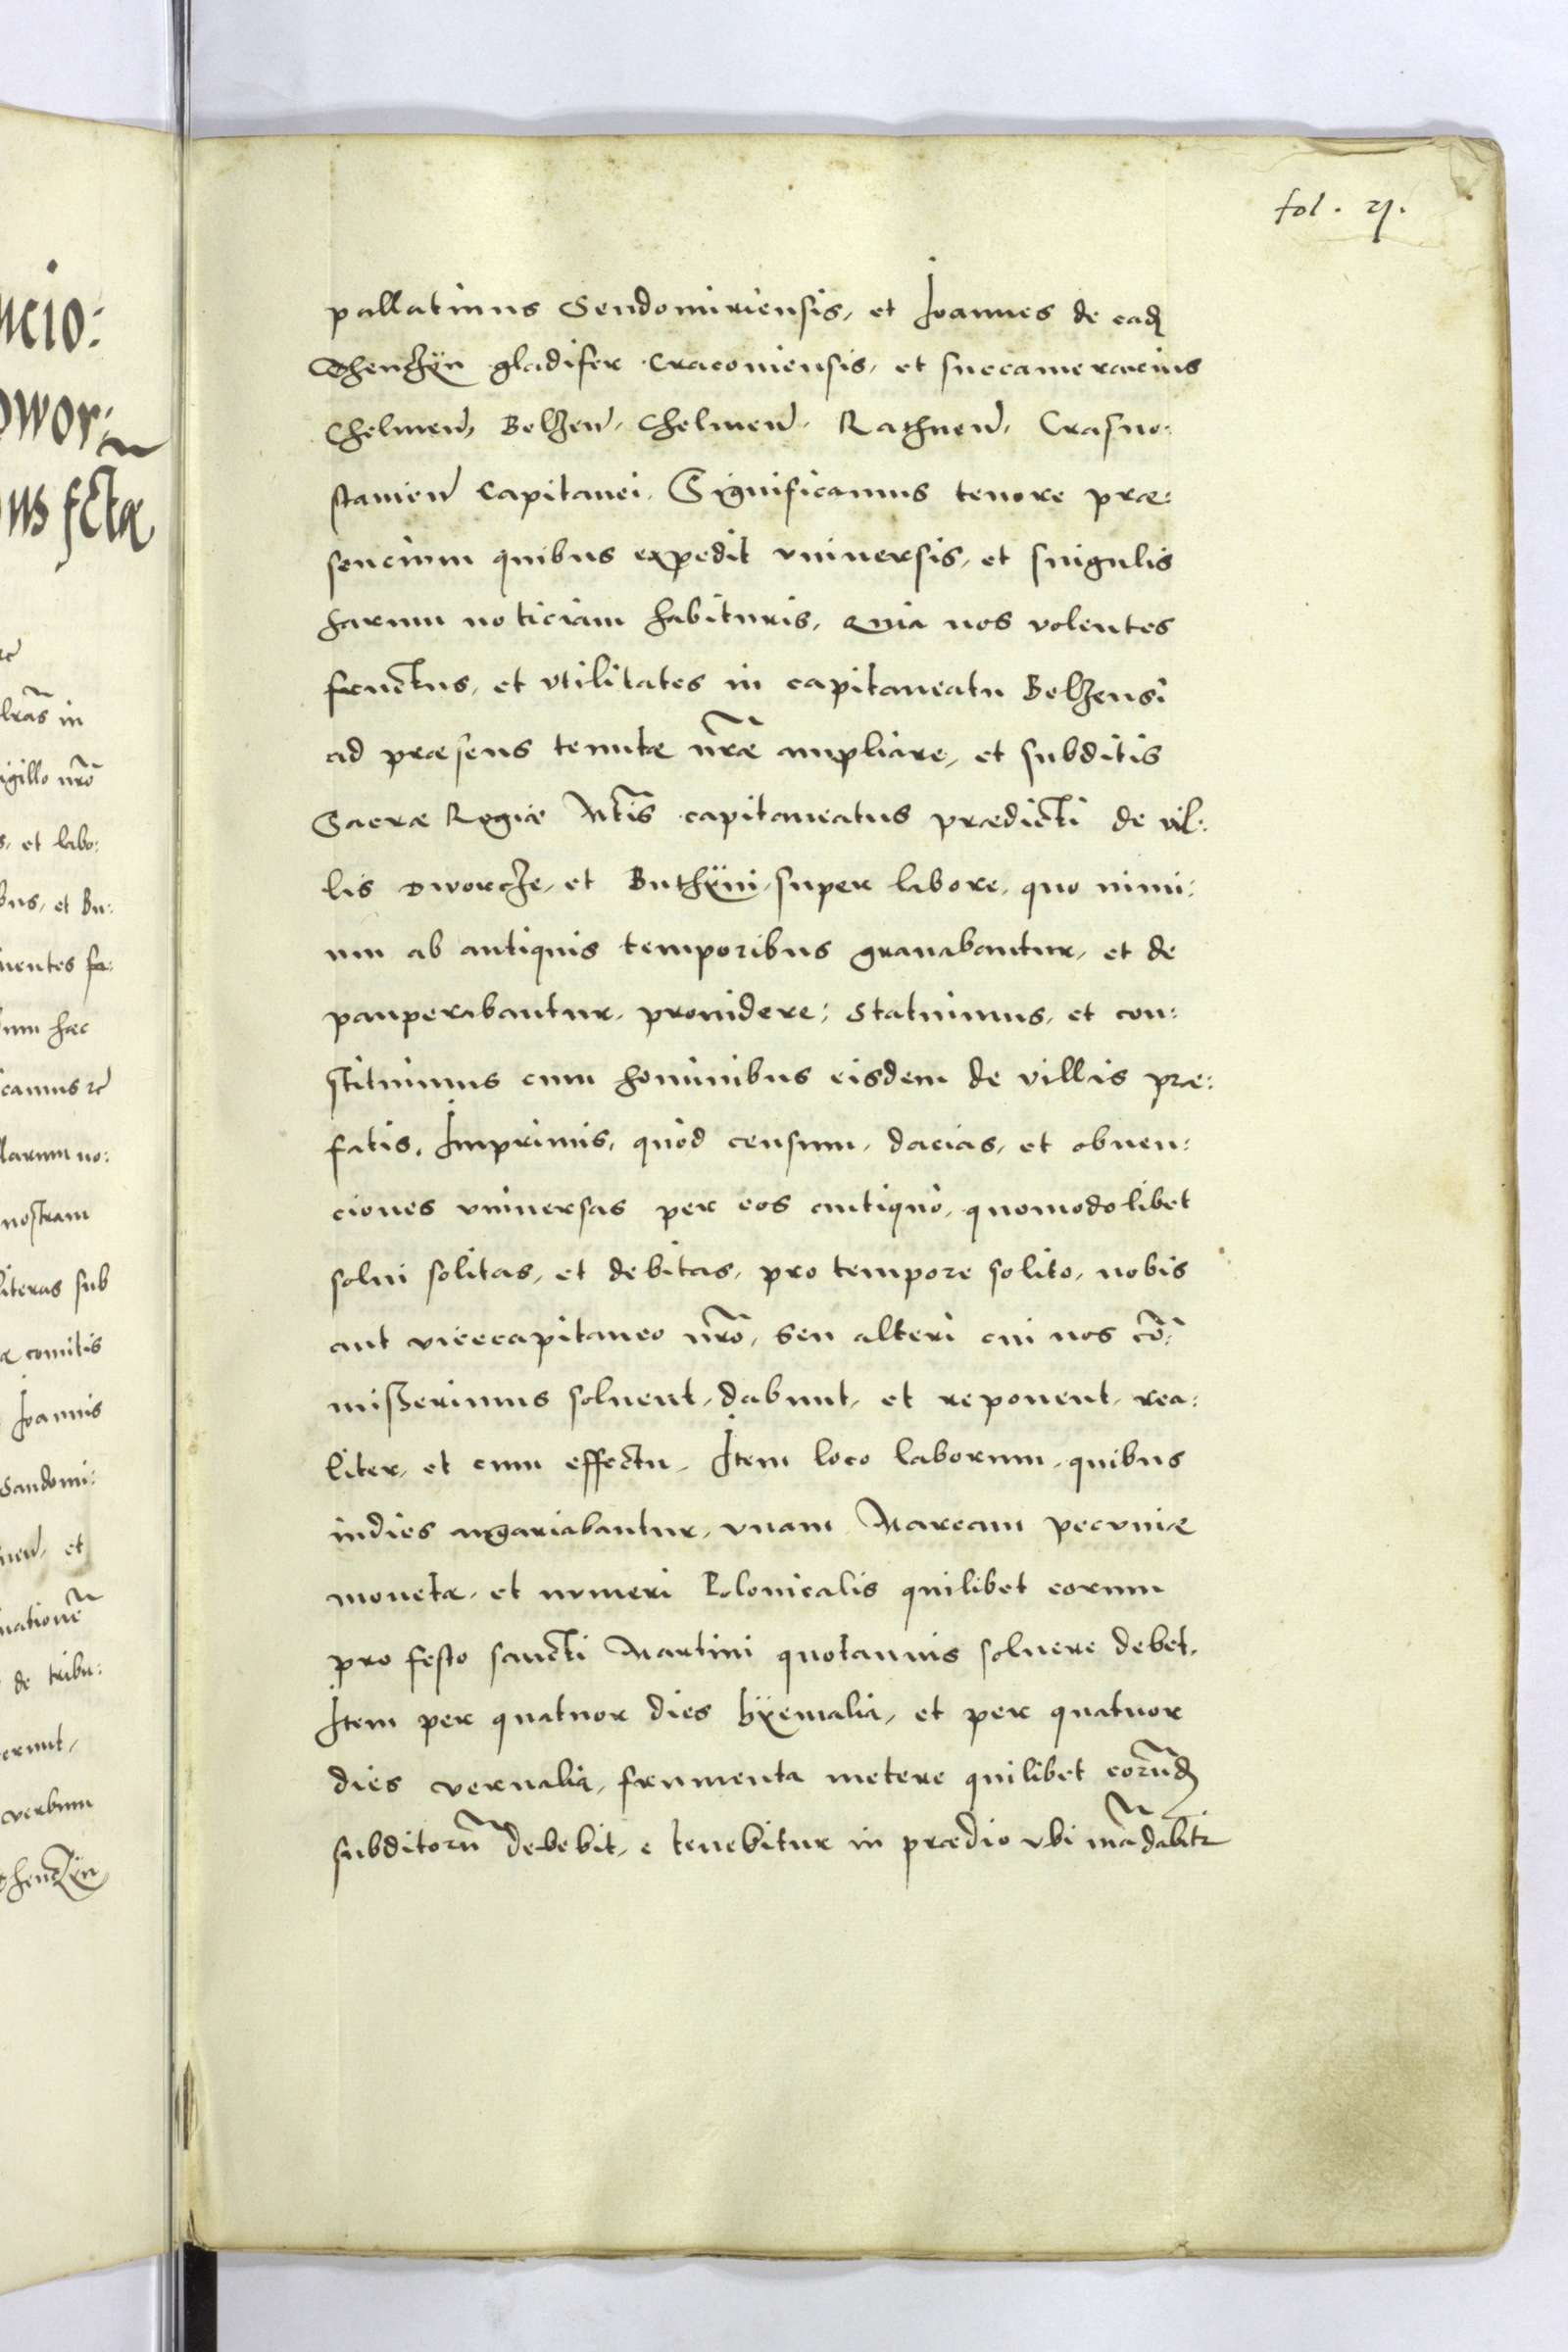 fol. 21.
pallatinus Sendomiriensis, et Joannes de eadē
Thenczÿn gladifer Cracoviensis, et succamerarius
Chelmeñ, Belzeñ, Chelmeñ, Rathneñ, Crasno:
stavieñ Capitanei. Significamus tenore præ:
sencium quibus expedit vniuersis, et singulis
harum noticiam habituris, Quia nos volentes
fructus, et vtilitates in capitaneatu Belzensi
ad præsens tenutæ nr̃æ ampliare, et subditis
Sacræ Regiæ Mtĩs capitaneatus prædicti de vil:
lis Dworcze, et Buthÿni, super labore, quo nimi:
um ab antiquis temporibus grauabantur, et de
pauperabantur, prouidere; Statuimus, et con:
stituimus cum hominibus eisdem de villis præ:
fatis. Imprimis, quòd censum, dacias, et obuen:
ciones vniuersas per eos antiquò, quomodolibet
solui solitas, et debitas, pro tempore solito, nobis
aut vicecapitaneo nr̃o, seu alteri cui nos cõ:
misserimus soluent, dabunt, et reponent, rea:
liter, et cum effectu. Item loco laborum, quibus
indies angariabantur, vnam Marcam pecuniæ
monetæ, et numeri Polonicalis quilibet eorum
pro festo sancti Martini quotannis soluere debet.
Item per quatuor dies hÿemalia, et per quatuor
dies vernalia, frumenta metere quilibet eorũdē
subditorũ debebit, e tenebitur in prædio vbi mãdabitr
ncio:
owor:
us fctæ
lrãs in
igillo nr̃o
s, et labo:
bus, et Bu:
uentes fa:
um hæc
icamus
larum no:
nostram
literas sub
æ comitis
Joannis
Sandomi:
et
natione
de tribu:
erunt,
verbum
Thenczÿn